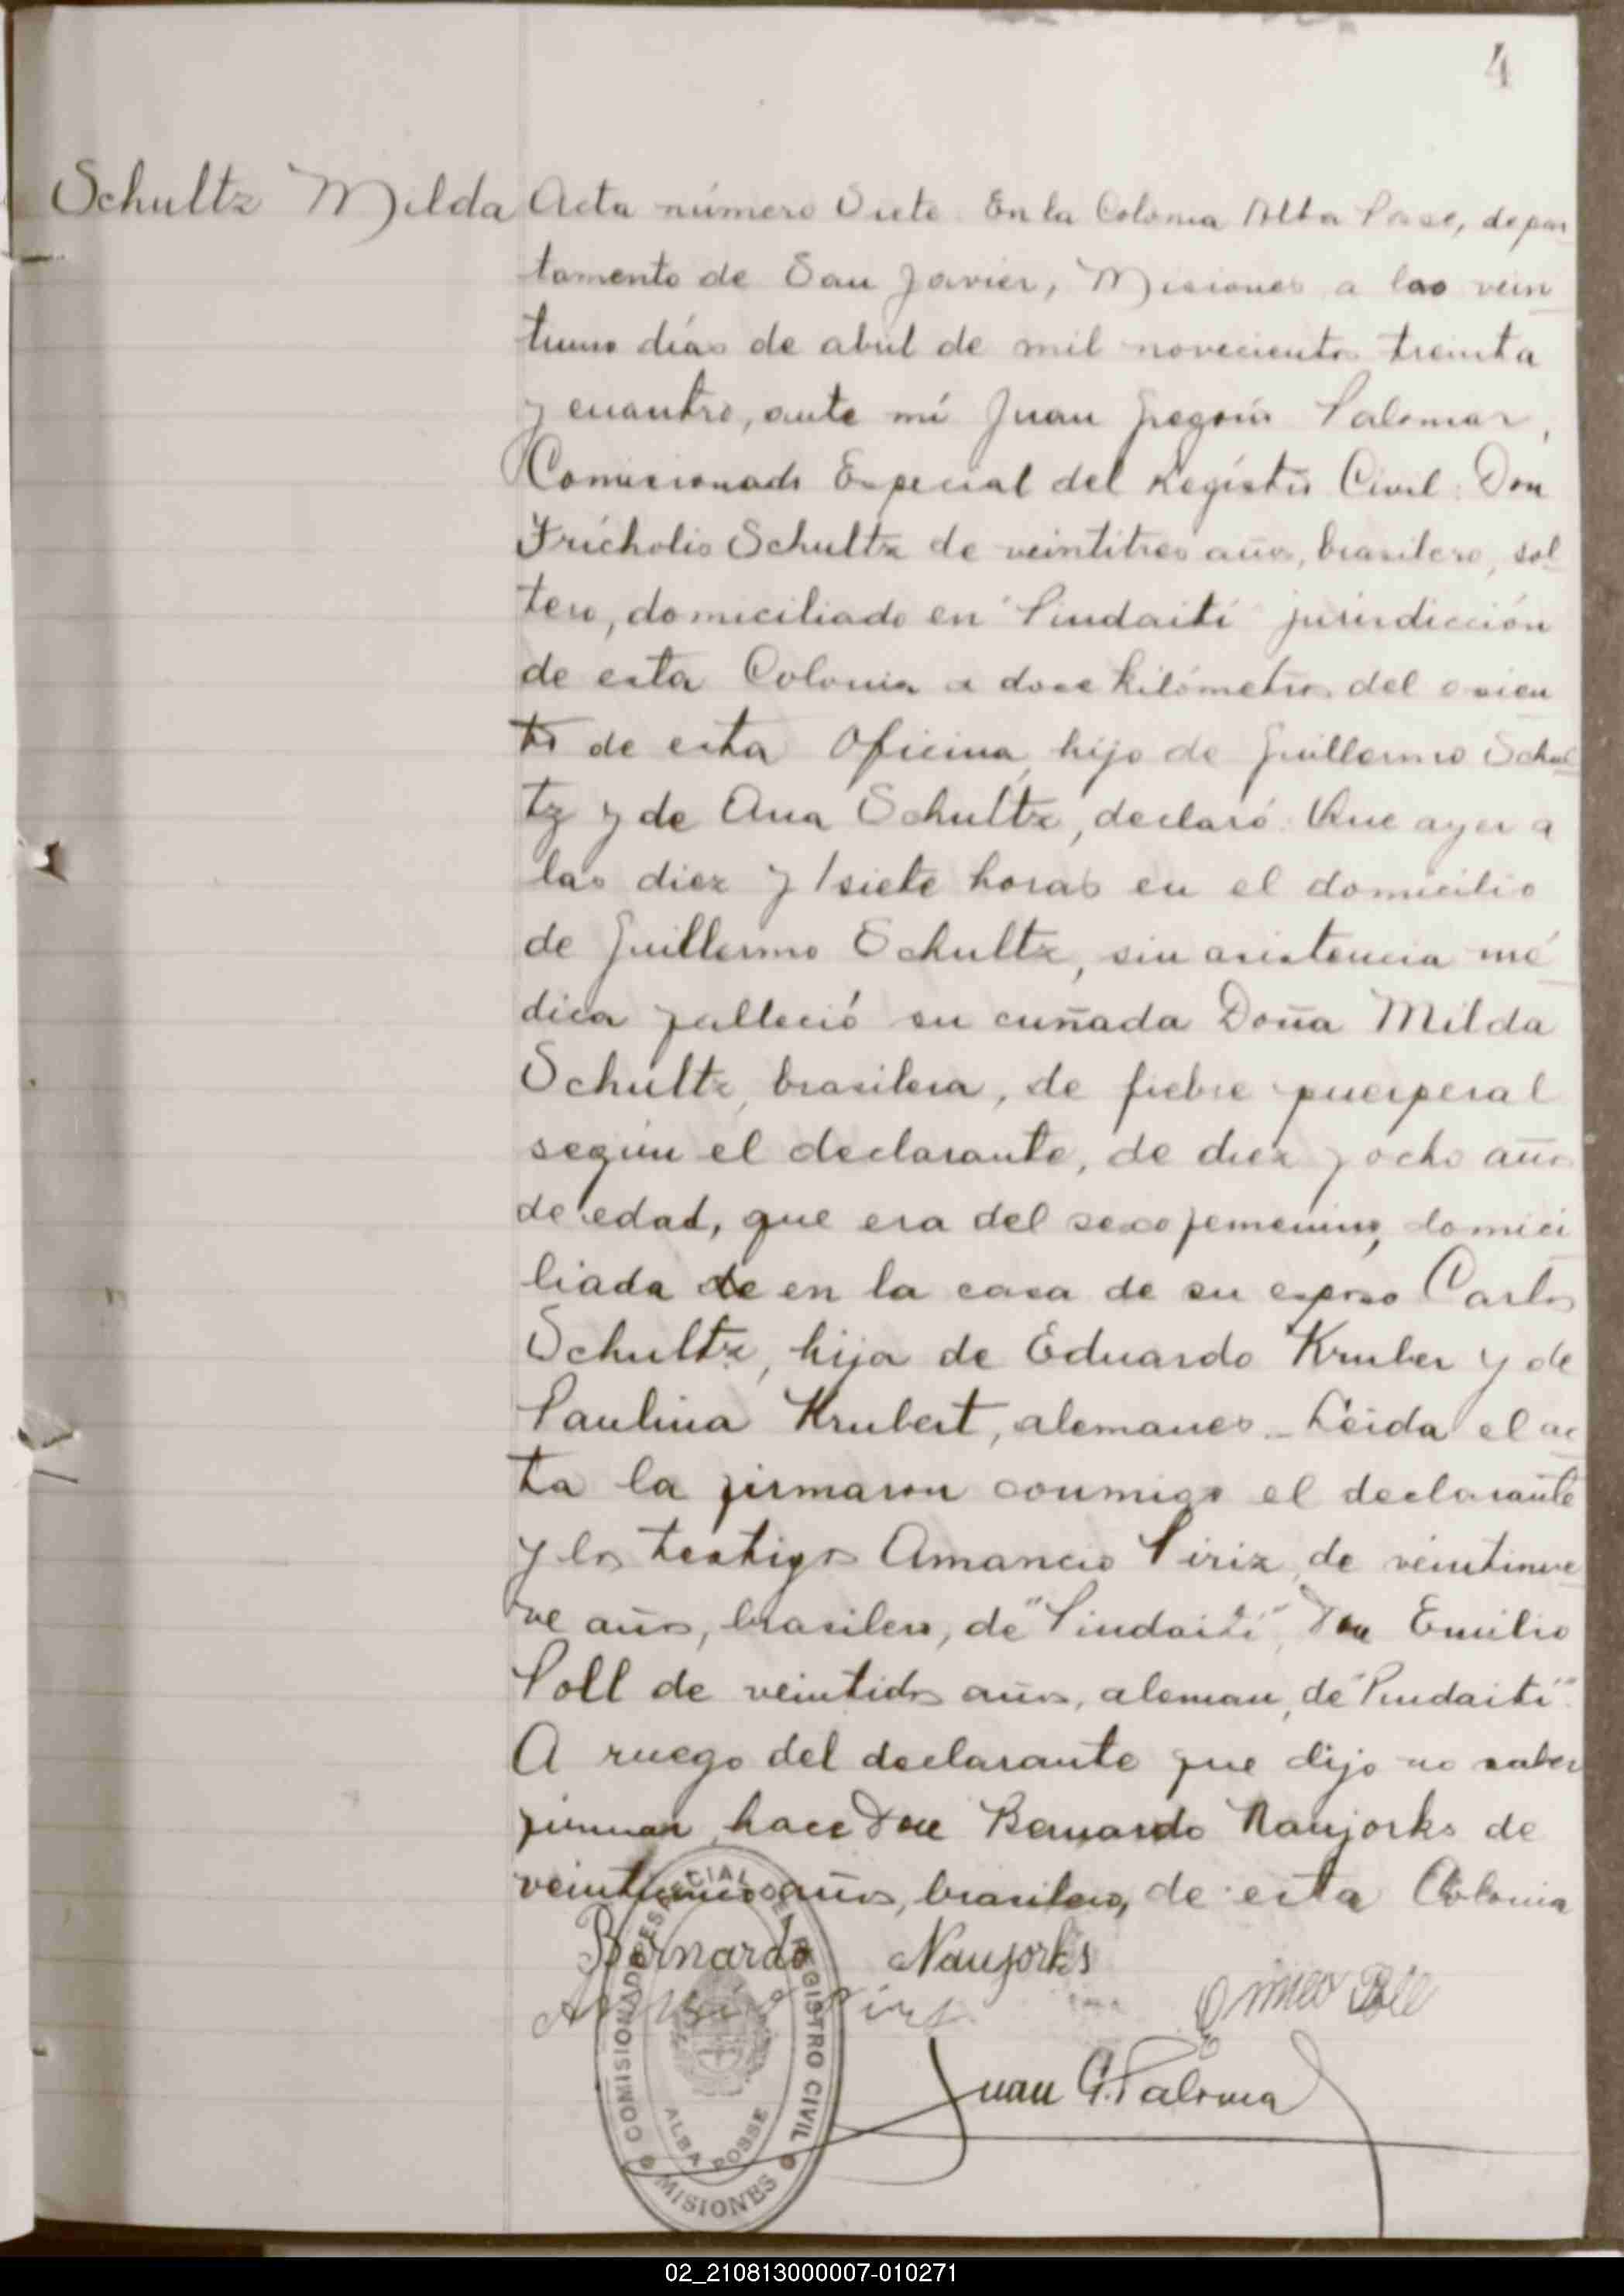 4
Schultz Milda Acta número Siete. En la Colonia Alba Posse, depar
tamento de San Javier, Misiones a los vein
tiuno días de abril de mil novecientos treinta
y cuantro, ante mí Juan Gregorio Palomar,
Comisionado Especial del Registro Civil: Don
Fricholis Schultz de veintitres años, brasilero, sol
tero, domiciliado en "Pindaití" jurisdicción
de esta Colonia a doce kilómetros del asien
to de esta Oficina, hijo de Guillermo Schul
tz y de Ana Schultz, declaró: Que ayer a
las diez y siete horas en el domicilio
de Guillermo Schultz, sin asistencia mé
dica falleció su cuñada Doña Milda
Schultz, brasilera, de fiebre puerperal
según el declarante, de diez y ocho años
de edad, que era del sexo femenino, domici
liada de en la casa de su esposo Carlos
Schultz, hija de Eduardo Kruber y de
Paulina Krubert, alemanes. Leída el ac
ta la firmaron conmigo el declarante
y los testigos Amancio Piriz, de veintinue
ve años, brasilero, de "Pindaití", Don Emilio
Poll de veintidos años, aleman, de "Pindaití".
A ruego del declarante que dijo no saber
firmar, hace Don Bernardo Naujorks de
años, brasilero, de esta Colonia
Bernardo Naujorks
Juan G. Palomar
COMISIONADO ESPECIAL DEL REGISTRO CIVIL
ALBA POSSE
MISIONES
02_210813000007-010271